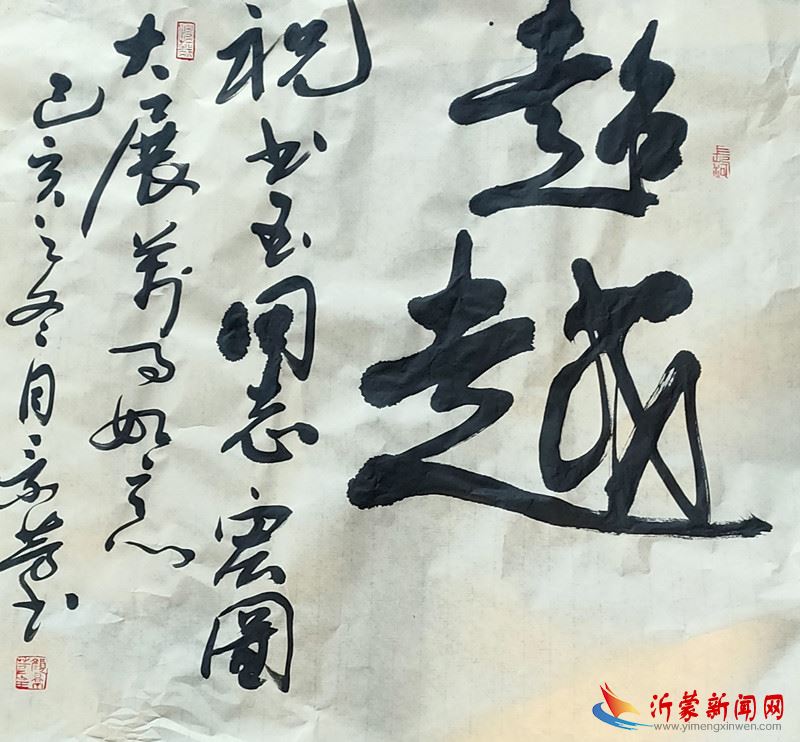 超越
祝书玉同志宏图
大展万事如意
己亥之冬月景芳书
沂蒙新闻网
www.yimengxinwen.com